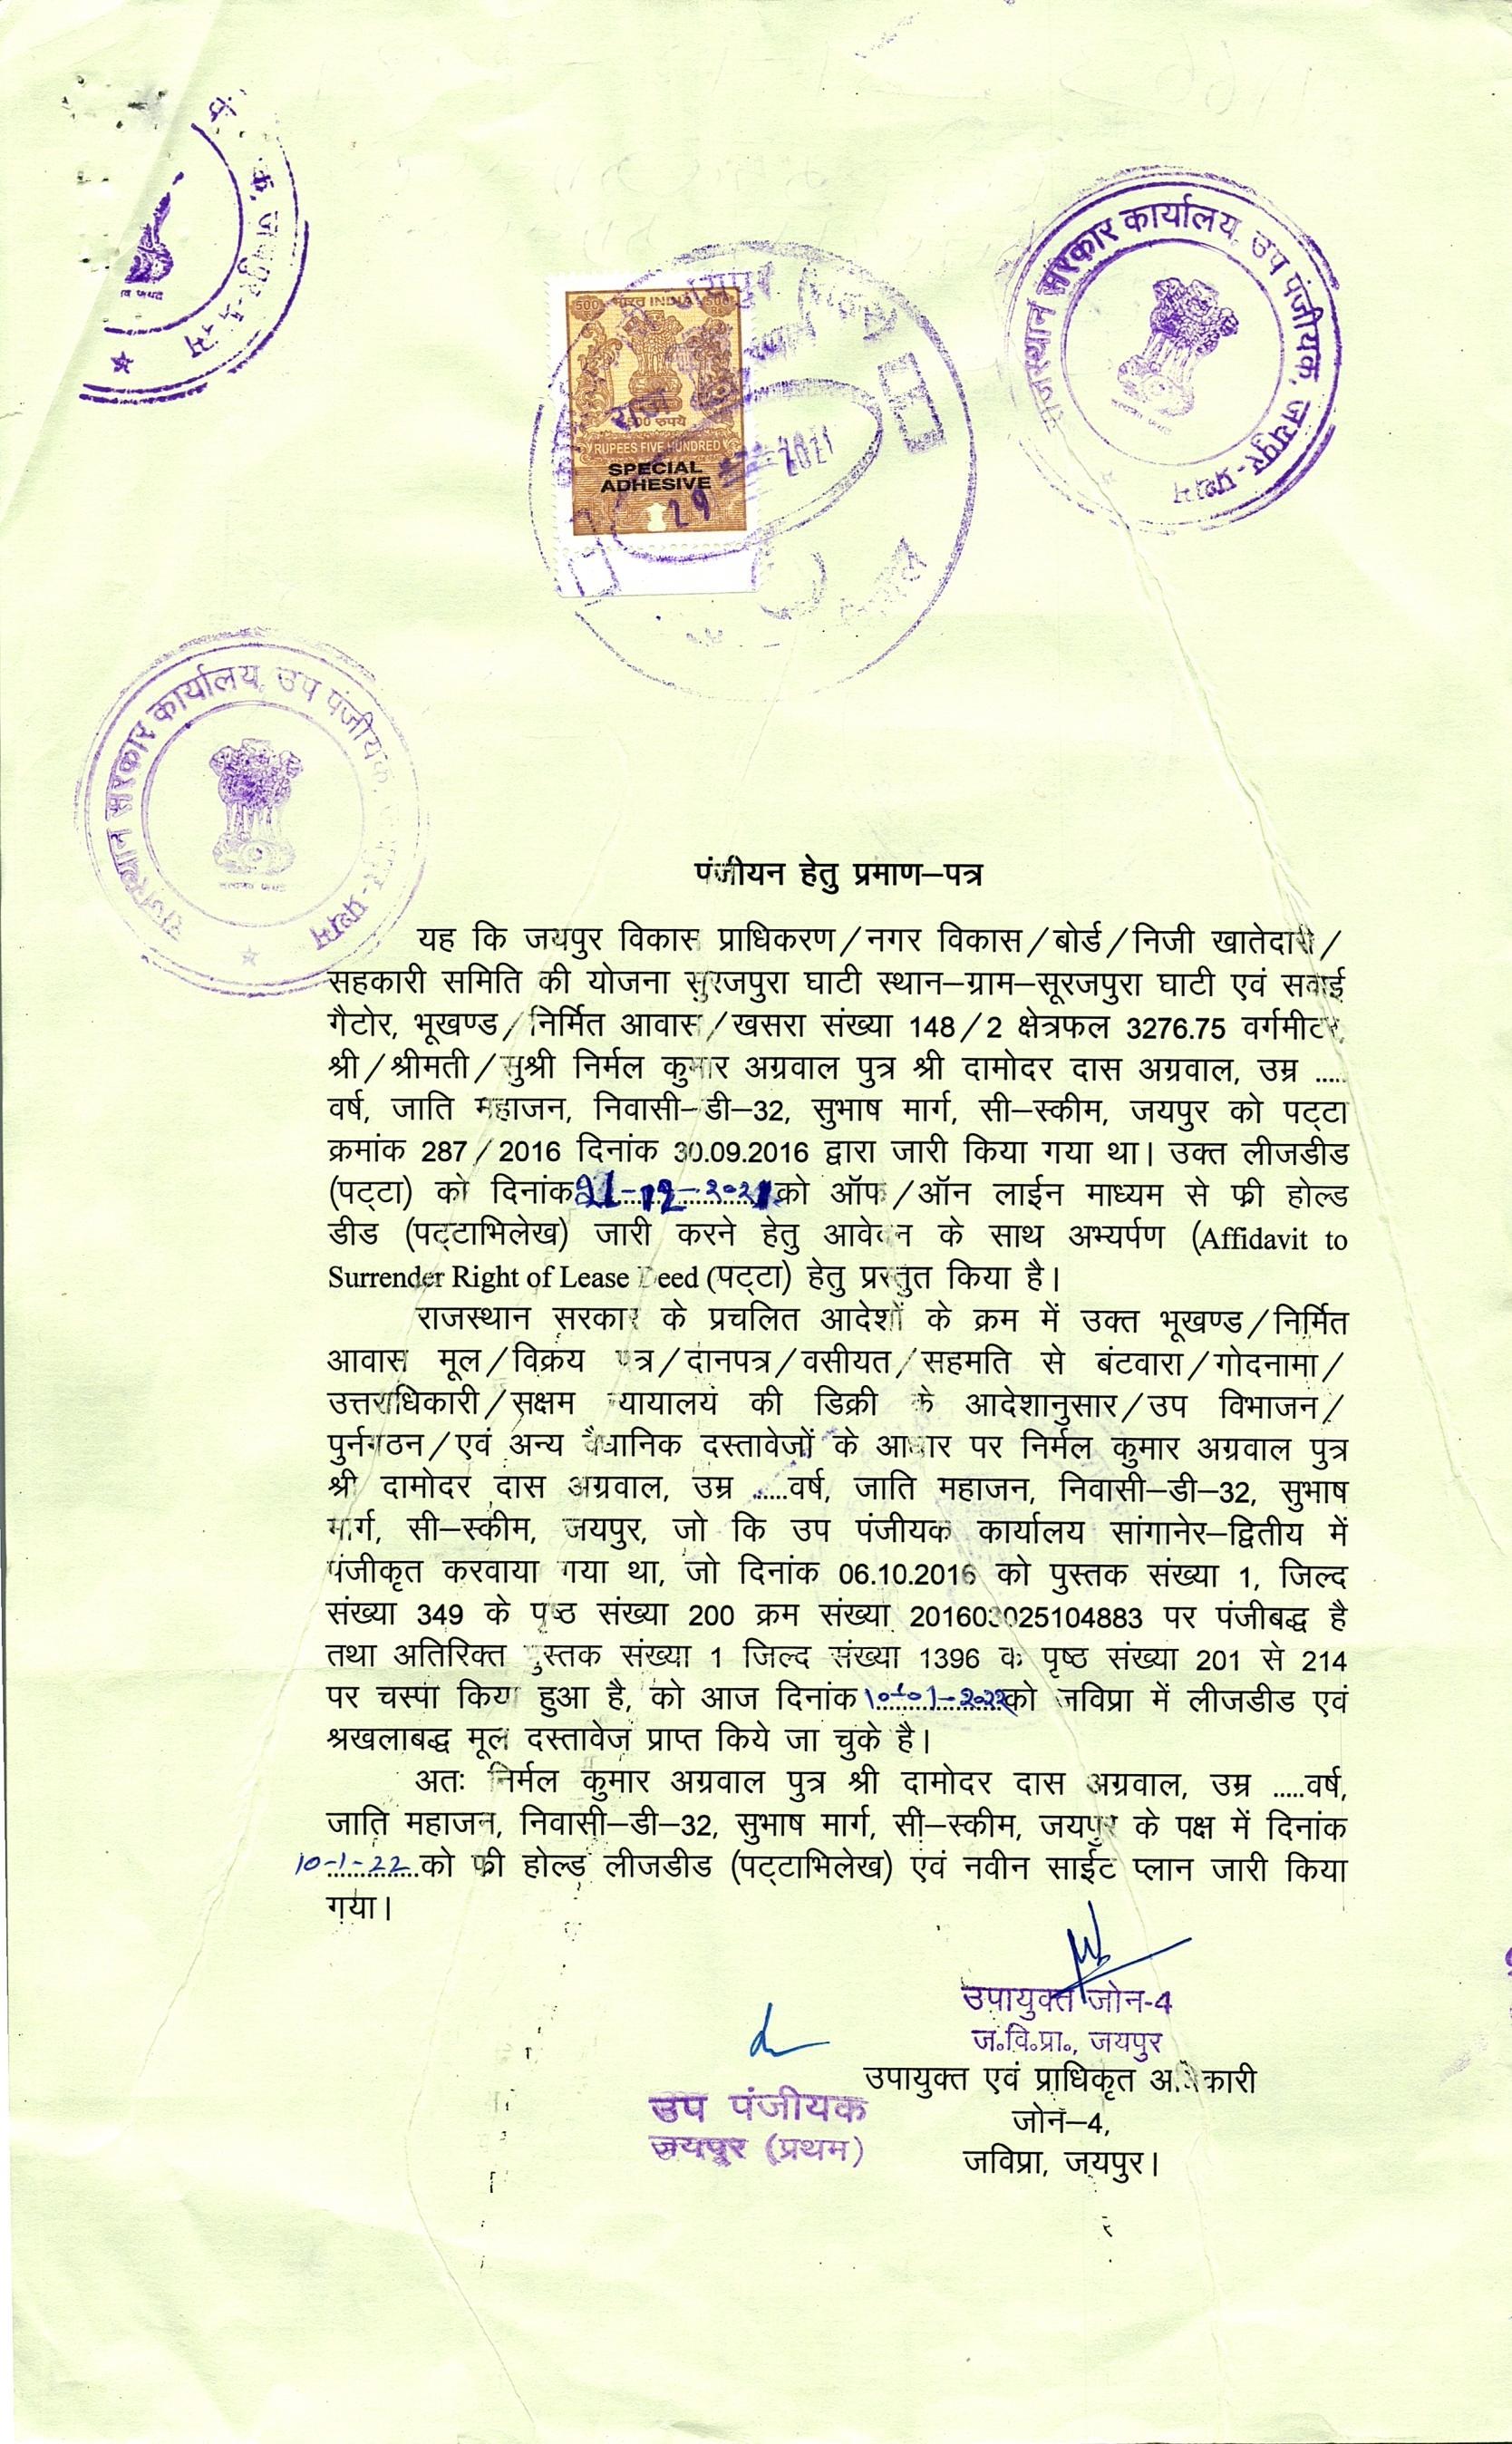 क, जयपुर-प्रथम
राजस्थान सरकार कार्यालय, उप पंजीयक, जयपुर-प्रथम
500 भारत INDIA 500
500 रुपये
RUPEES FIVE HUNDRED
SPECIAL
ADHESIVE
29
2021
जयपुर
राज
राजस्थान सरकार कार्यालय, उप पंजीयक, जयपुर-प्रथम
पंजीयन हेतु प्रमाण–पत्र
यह कि जयपुर विकास प्राधिकरण/नगर विकास/बोर्ड/निजी खातेदारी/
सहकारी समिति की योजना सुरजपुरा घाटी स्थान–ग्राम–सूरजपुरा घाटी एवं सवाई
गैटोर, भूखण्ड/निर्मित आवास/खसरा संख्या 148/2 क्षेत्रफल 3276.75 वर्गमीटर,
श्री/श्रीमती/सुश्री निर्मल कुमार अग्रवाल पुत्र श्री दामोदर दास अग्रवाल, उम्र .....
वर्ष, जाति महाजन, निवासी–डी–32, सुभाष मार्ग, सी–स्कीम, जयपुर को पट्टा
क्रमांक 287/2016 दिनांक 30.09.2016 द्वारा जारी किया गया था। उक्त लीजडीड
(पट्टा) को दिनांक 21-12-2021 को ऑफ/ऑन लाईन माध्यम से फ्री होल्ड
डीड (पट्टाभिलेख) जारी करने हेतु आवेदन के साथ अभ्यर्पण (Affidavit to
Surrender Right of Lease Deed (पट्टा) हेतु प्रस्तुत किया है।
राजस्थान सरकार के प्रचलित आदेशों के क्रम में उक्त भूखण्ड/निर्मित
आवास मूल/विक्रय पत्र/दानपत्र/वसीयत/सहमति से बंटवारा/गोदनामा/
उत्तराधिकारी/सक्षम न्यायालय की डिक्री के आदेशानुसार/उप विभाजन/
पुर्नगठन/एवं अन्य वैधानिक दस्तावेजों के आधार पर निर्मल कुमार अग्रवाल पुत्र
श्री दामोदर दास अग्रवाल, उम्र ......वर्ष, जाति महाजन, निवासी–डी–32, सुभाष
मार्ग, सी–स्कीम, जयपुर, जो कि उप पंजीयक कार्यालय सांगानेर–द्वितीय में
पंजीकृत करवाया गया था, जो दिनांक 06.10.2016 को पुस्तक संख्या 1, जिल्द
संख्या 349 के पृष्ठ संख्या 200 क्रम संख्या 201603025104883 पर पंजीबद्ध है
तथा अतिरिक्त पुस्तक संख्या 1 जिल्द संख्या 1396 के पृष्ठ संख्या 201 से 214
पर चस्पा किया हुआ है, को आज दिनांक 10-01-2022 को जविप्रा में लीजडीड एवं
श्रखलाबद्ध मूल दस्तावेज प्राप्त किये जा चुके है।
अतः निर्मल कुमार अग्रवाल पुत्र श्री दामोदर दास अग्रवाल, उम्र .....वर्ष,
जाति महाजन, निवासी–डी–32, सुभाष मार्ग, सी–स्कीम, जयपुर के पक्ष में दिनांक
10-1-22 को फ्री होल्ड लीजडीड (पट्टाभिलेख) एवं नवीन साईट प्लान जारी किया
गया।
उपायुक्त जोन-4
ज०वि०प्रा०, जयपुर
उपायुक्त एवं प्राधिकृत अधिकारी
जोन–4,
जविप्रा, जयपुर।
उप पंजीयक
जयपुर (प्रथम)